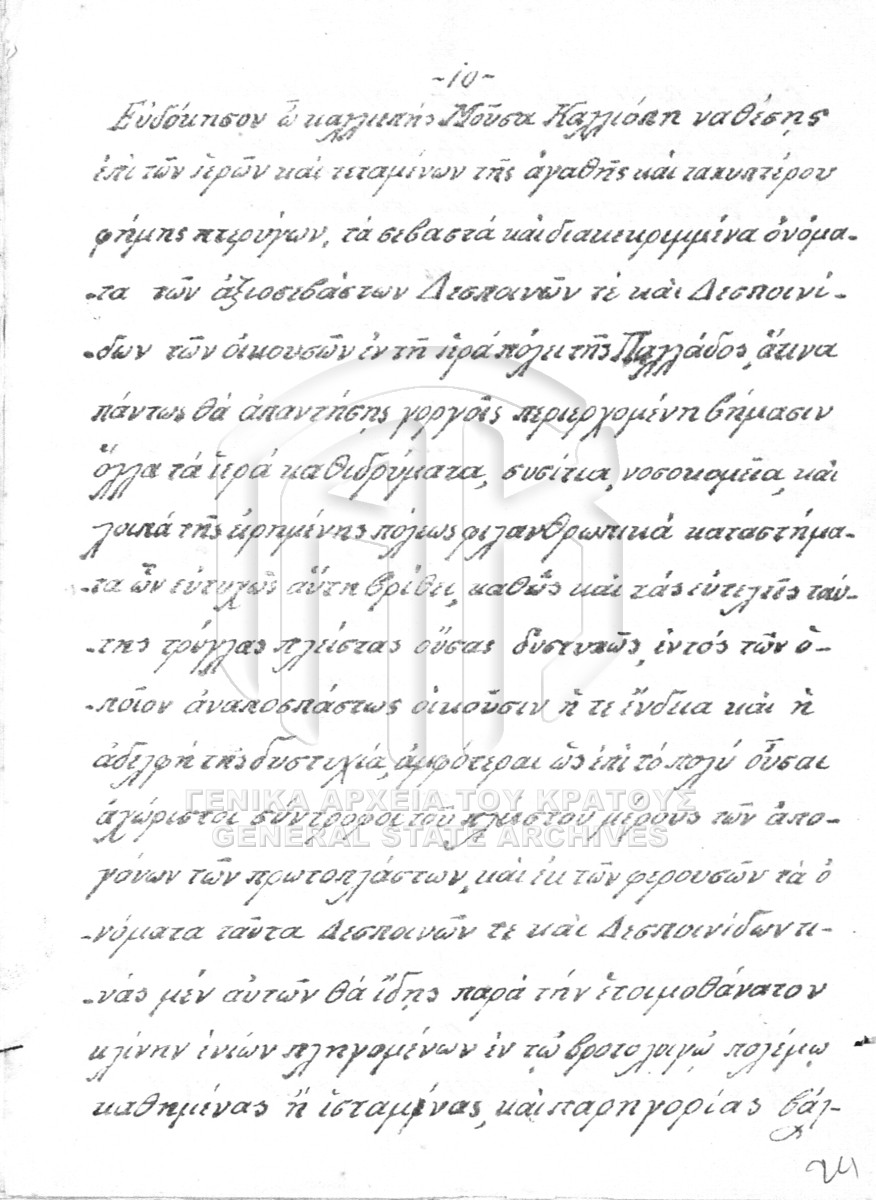 -10-
Εὐδόκησον ὦ καλλιεπής Μοῦσα Καλλιόπη να θέσῃς
ἐπὶ τῶν ἱερῶν καὶ τεταμένων τῆς ἀγαθῆς καὶ ταχυπτέρου
φήμης πτερύγων, τά σεβαστά καὶ διακεκριμμένα ὀνόμα-
-τα τῶν ἀξιοσεβάστων Δεσποινῶν τέ καὶ Δεσποινί-
-δων τῶν οἰκουσῶν ἐν τῇ ἱερᾷ πόλει τῆς Παλλάδος, ἅτινα
πάντως θά ἀπαντήσῃς γοργοῖς περιερχομένη βήμασιν
ὅλλα τά ἱερά καθιδρύματα, συσίτια, νοσοκομεῖα, καὶ
λοιπά τῆς εἰρημένης πόλεως φιλανθρωπικά καταστήμα-
-τα ὧν εὐτυχῶς αὕτη βρίθει, καθὼς καὶ τάς εὐτελεῖς ταύ-
-της τρώγλας πλείστας οὔσας δυστυχῶς, ἐντός τῶν ὁ-
-ποῖον ἀναποσπάστως οἰκοῦσιν ἥ τε ἔνδεια καὶ ἡ
ἀδελφή της δυστυχία, ἀμφότεραι ὡς ἐπὶ τό πολύ οὖσαι
ἀχώριστοι σύντροφοι τοῦ πλείστου μέρους τῶν ἀπο-
γόνων τῶν πρωτοπλάστων, καὶ ἐκ τῶν φερουσῶν τὰ ὀ
-νόματα ταῦτα Δεσποινῶν τε καὶ Δεσποινίδων τι-
-νάς μέν αὐτῶν θά ἴδῃς παρά τήν ἑτοιμοθάνατον
κλίνην ἐνίων πληγομένων ἐν τῷ βροτολοιγῷ πολέμῳ
καθημένας ἤ ἱσταμένας, καὶ παρηγορίας βάλ-
24
ΓΕΝΙΚΑ ΑΡΧΕΙΑ ΤΟΥ ΚΡΑΤΟΥΣ
GENERAL STATE ARCHIVES